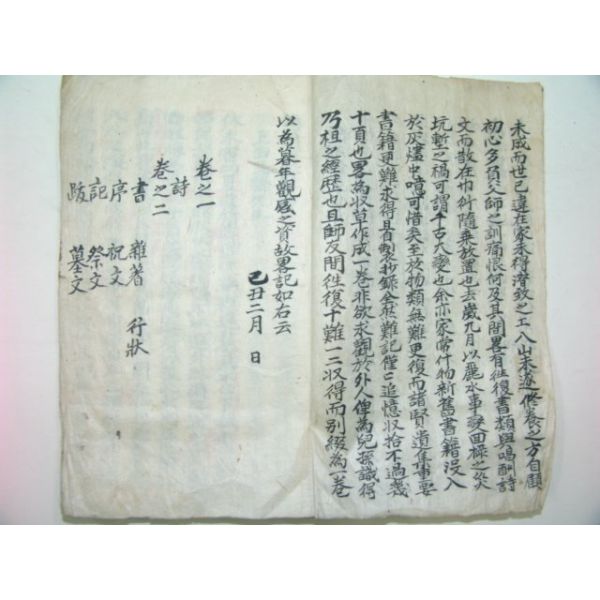 未成而世已違在家未得資敦之工入山未遂修養之方自顧
初心多負父師之訓痛恨何及其間畧有往復書類與唱酬詩
文而散在巾笥隨棄放置也去歲九月以麗水事變回祿之災
坑塹之禍可謂千古大變也余亦家常什物新舊書籍沒入
於灰燼中噫可惜矣至於物類無難更復而諸賢遺集事要
書籍更難求得且自製抄錄全然難記僅僅追憶收拾不過幾
十頁也畧為收草作成一卷非欲求觀於外人俾為兒孫識得
乃祖之經歷也且師友間往復十難一二収得而別綴為一卷
以為暮年觀感之資故畧記如右云
己丑二月 日
卷之一
詩
卷之二
書 雜著 行狀
序 祝文
記 祭文
跋 墓文